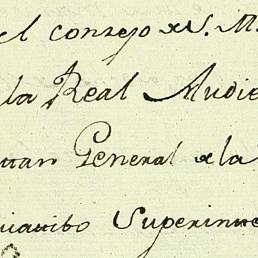 el consejo de S. M.
la Real Audie
itan General de la
uatibo Superinte